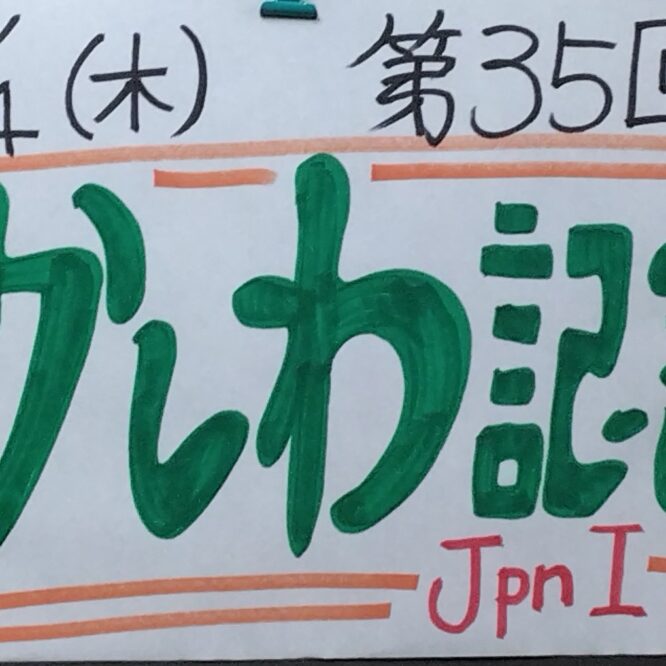 4(木) 第35回
かしわ記念
JpnI